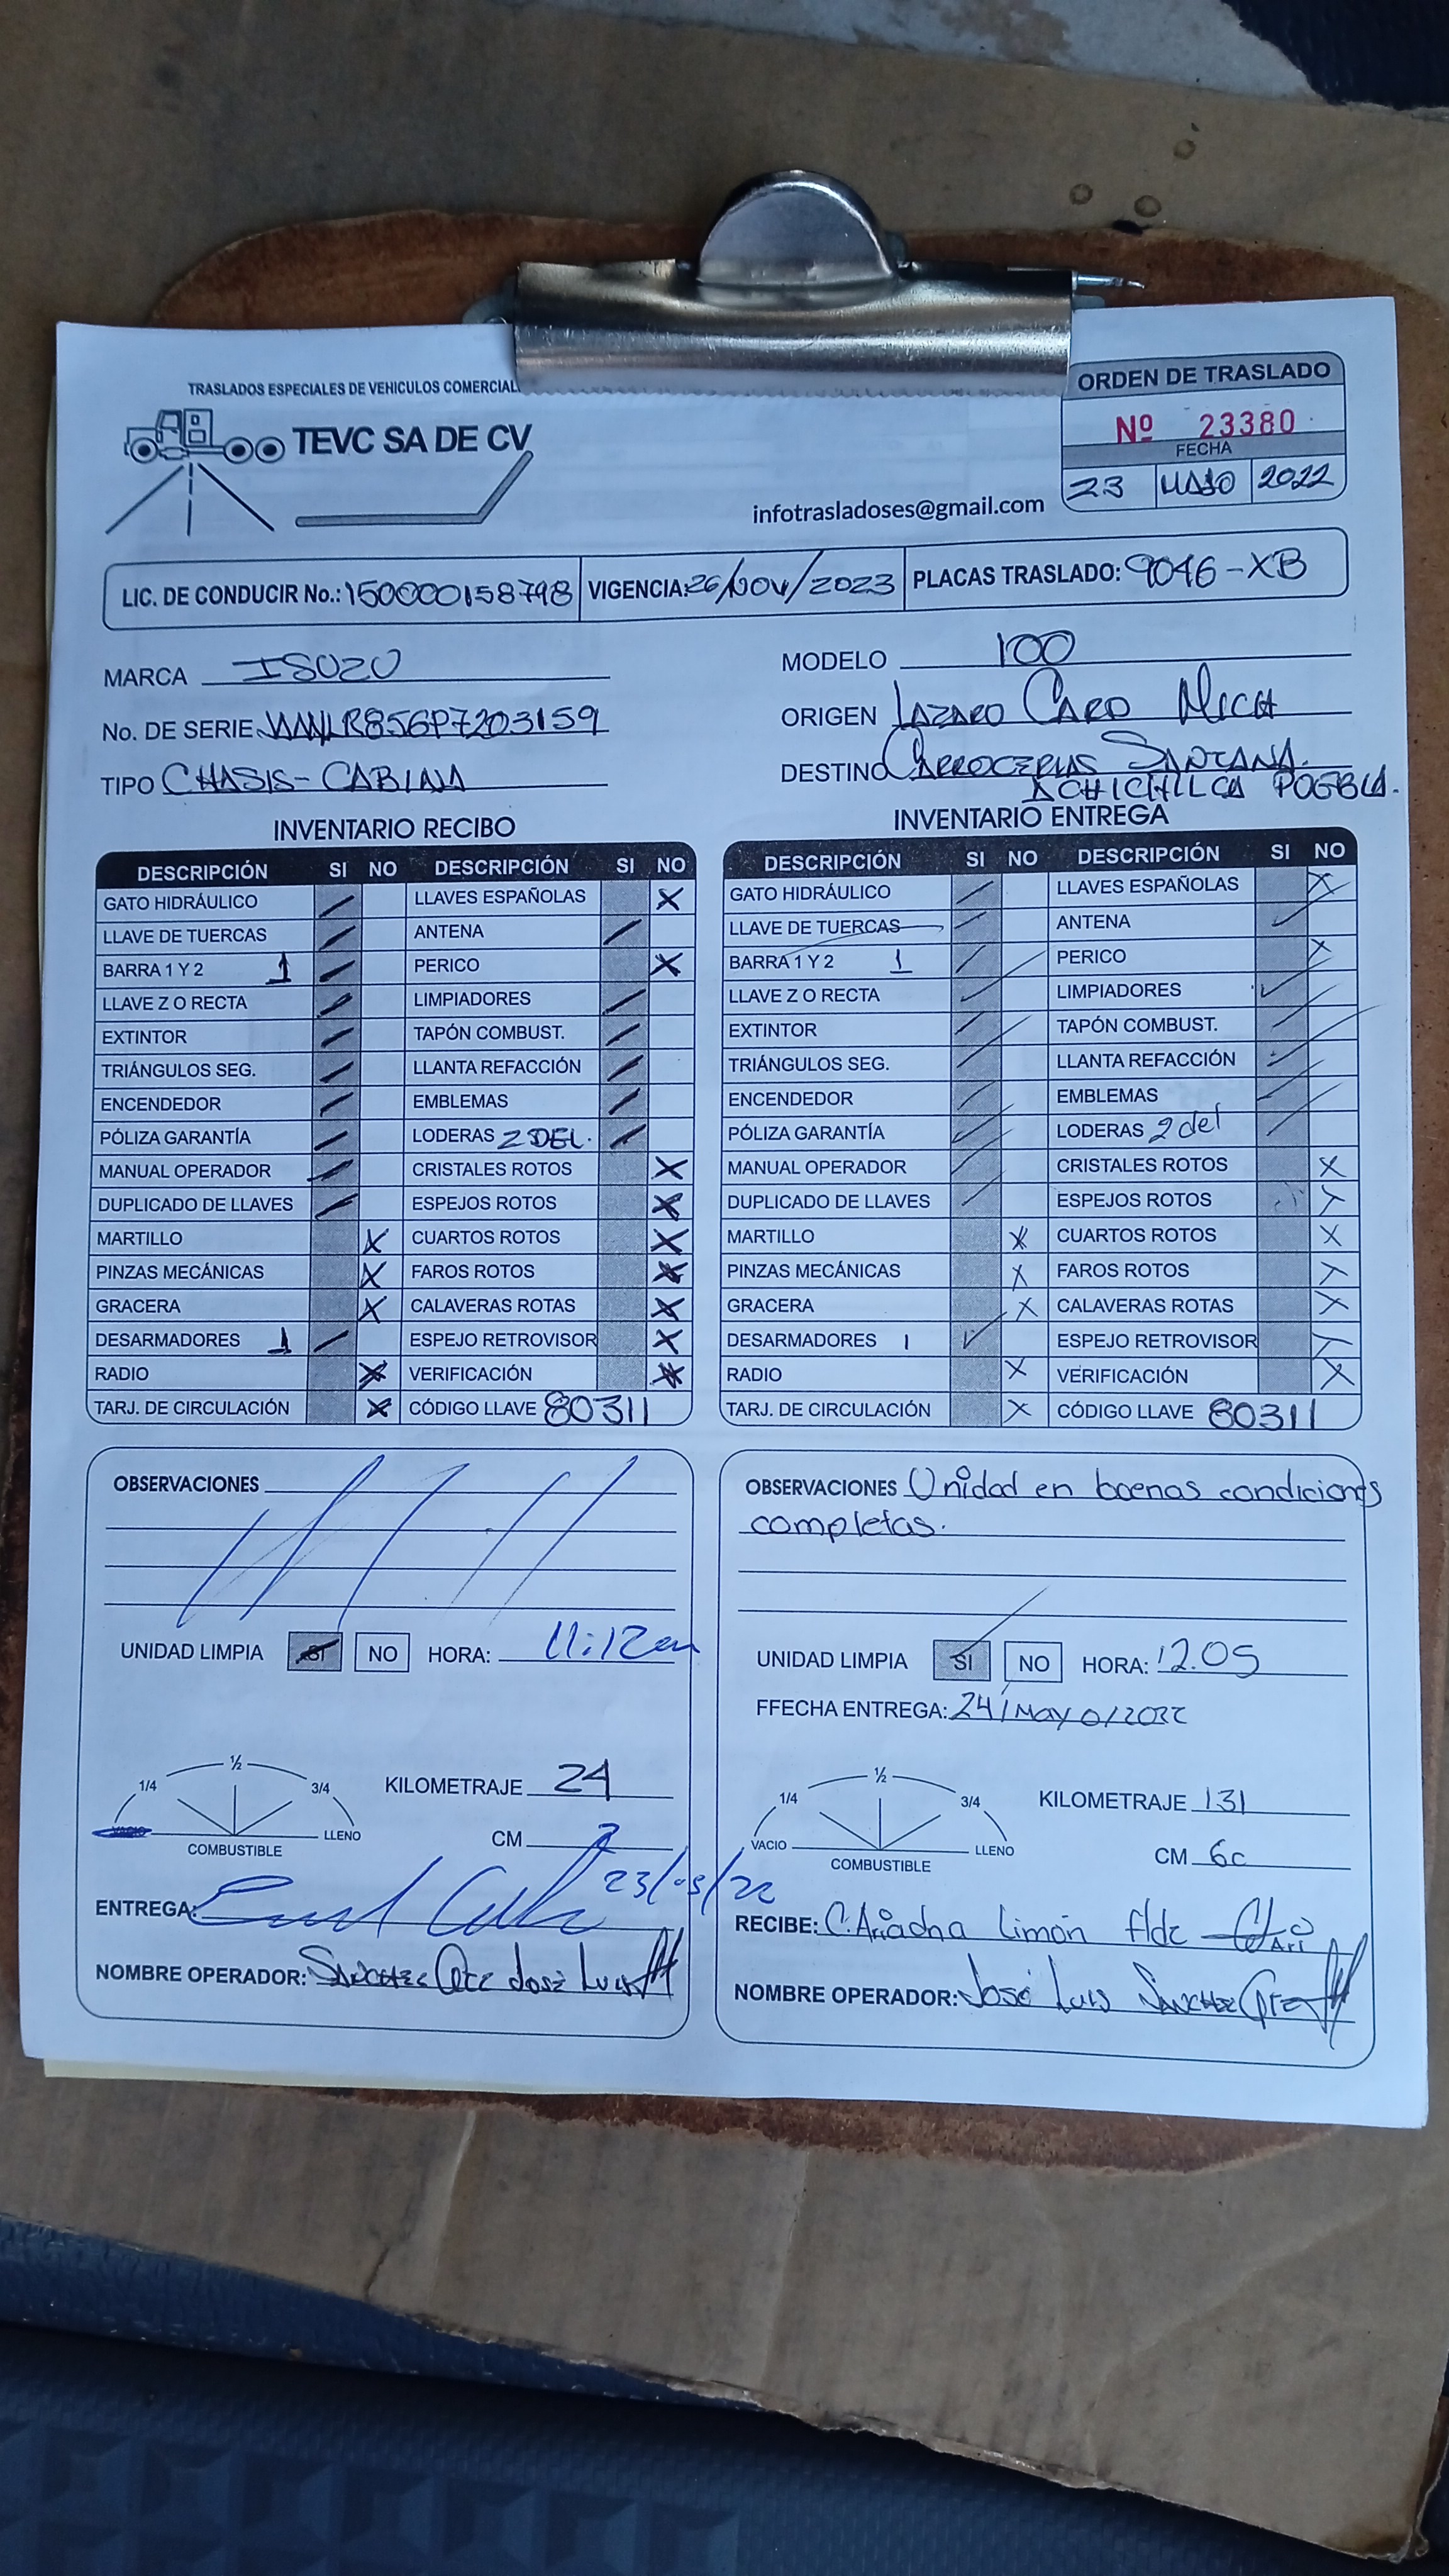 TRASLADOS ESPECIALES DE VEHICULOS COMERCIAL
TEVC SA DE CV
infotrasladoses@gmail.com
ORDEN DE TRASLADO
Nº 23380
FECHA
23 MAYO 2022
LIC. DE CONDUCIR No.: 150000158798 VIGENCIA: 26/NOV/2023 PLACAS TRASLADO: 9046-XB
MARCA ISUZU MODELO 100
No. DE SERIE ORIGEN LAZARO CARD MICH
TIPO CHASIS-CABINA DESTINO CARROCERIAS SANTANA.
ACHICHILCA PUEBLA.
INVENTARIO RECIBO
DESCRIPCIÓN SI NO DESCRIPCIÓN SI NO
GATO HIDRÁULICO / LLAVES ESPAÑOLAS X
LLAVE DE TUERCAS / ANTENA /
BARRA 1 Y 2 1 / PERICO X
LLAVE Z O RECTA / LIMPIADORES /
EXTINTOR / TAPÓN COMBUST. /
TRIÁNGULOS SEG. / LLANTA REFACCIÓN /
ENCENDEDOR / EMBLEMAS /
PÓLIZA GARANTÍA / LODERAS 2 DEL. /
MANUAL OPERADOR / CRISTALES ROTOS X
DUPLICADO DE LLAVES / ESPEJOS ROTOS X
MARTILLO X CUARTOS ROTOS X
PINZAS MECÁNICAS X FAROS ROTOS X
GRACERA X CALAVERAS ROTAS X
DESARMADORES 1 / ESPEJO RETROVISOR X
RADIO X VERIFICACIÓN X
TARJ. DE CIRCULACIÓN X CÓDIGO LLAVE 80311
OBSERVACIONES
UNIDAD LIMPIA SI NO HORA: 11:12am
1/4 ½ 3/4
VACIO LLENO
COMBUSTIBLE
KILOMETRAJE 24
CM
23/05/22
ENTREGA:
NOMBRE OPERADOR: SANCHEZ José Luis
INVENTARIO ENTREGA
DESCRIPCIÓN SI NO DESCRIPCIÓN SI NO
GATO HIDRÁULICO / LLAVES ESPAÑOLAS X
LLAVE DE TUERCAS / ANTENA /
BARRA 1 Y 2 1 / PERICO X
LLAVE Z O RECTA / LIMPIADORES /
EXTINTOR / TAPÓN COMBUST. /
TRIÁNGULOS SEG. / LLANTA REFACCIÓN /
ENCENDEDOR / EMBLEMAS /
PÓLIZA GARANTÍA / LODERAS 2 del /
MANUAL OPERADOR / CRISTALES ROTOS X
DUPLICADO DE LLAVES / ESPEJOS ROTOS X
MARTILLO X CUARTOS ROTOS X
PINZAS MECÁNICAS X FAROS ROTOS X
GRACERA X CALAVERAS ROTAS X
DESARMADORES 1 / ESPEJO RETROVISOR X
RADIO X VERIFICACIÓN X
TARJ. DE CIRCULACIÓN X CÓDIGO LLAVE 80311
OBSERVACIONES Unidad en buenas condiciones
completas.
UNIDAD LIMPIA SI NO HORA: 12.05
FFECHA ENTREGA: 24/Mayo/2022
1/4 ½ 3/4
VACIO LLENO
COMBUSTIBLE
KILOMETRAJE 131
CM 60
RECIBE: C. Ariadna Limón
NOMBRE OPERADOR: José Luis SANCHEZ